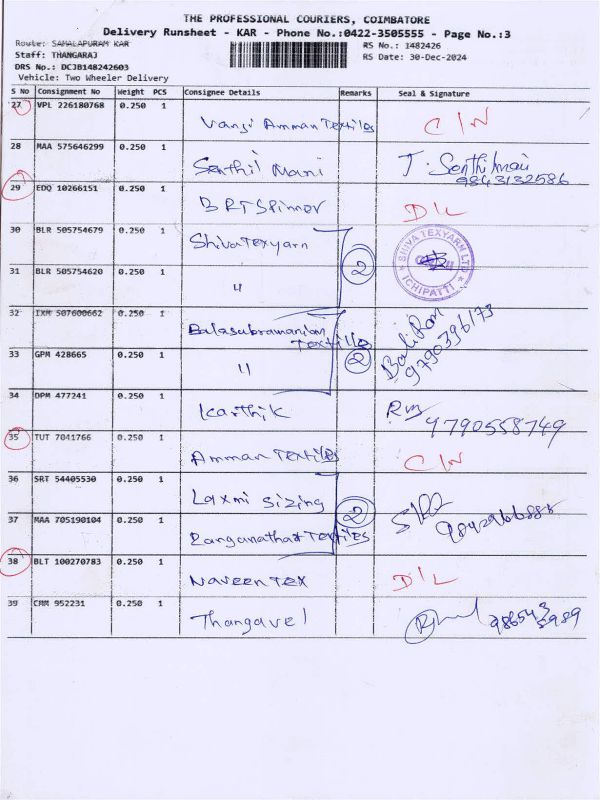 THE PROFESSIONAL COURIERS, COIMBATORE
Delivery Runsheet - KAR - Phone No.:0422-3505555 - Page No.:3
Route: SAMALAPURAM KAR
RS No.: 1482426
Staff: THANGARAJ
RS Date: 30-Dec-2024
DRS No.: DCJB148242603
Vehicle: Two Wheeler Delivery
S No Consignment No Weight PCS Consignee Details Remarks Seal & Signature
27 VPL 226180768 0.250 1 Vanji Amman Textiles C/N
28 MAA 575646299 0.250 1 Senthil Mani T. Senthilmani 9843132586
29 EDQ 10266151 0.250 1 BRT Spinner D/L
30 BLR 505754679 0.250 1 Shiva Texyarn
2 SHIVA TEXYARN LTD ICHIPATTI
31 BLR 505754620 0.250 1 "
32 IXM 507600662 0.250 1 Balasubramanian Textiles
2 9790396173
33 GPM 428665 0.250 1 "
34 DPM 477241 0.250 1 Karthik 9790558749
35 TUT 7041766 0.250 1 Amman Textiles C/N
36 SRT 54405530 0.250 1 Laxmi Sizing
2
37 MAA 705190104 0.250 1 Ranganathar Textiles
38 BLT 100270783 0.250 1 Naveen Tex D/L
39 CMM 952231 0.250 1 Thangavel